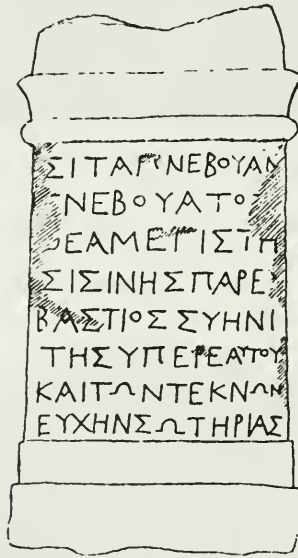 ΣΙΤΑΓΝΕΒΟΥΑΝ
ΝΕΒΟΥΑΤΟ
ΘΕΑΜΕΓΙΣΤΗ
ΣΙΣΙΝΗΣΠΑΡΕ
ΒΑΣΤΙΟΣΣΥΗΝΙ
ΤΗΣΥΠΕΡΕΑΥΤΟΥ
ΚΑΙΤΩΝΤΕΚΝΩΝ
ΕΥΧΗΝΣΩΤΗΡΙΑΣ